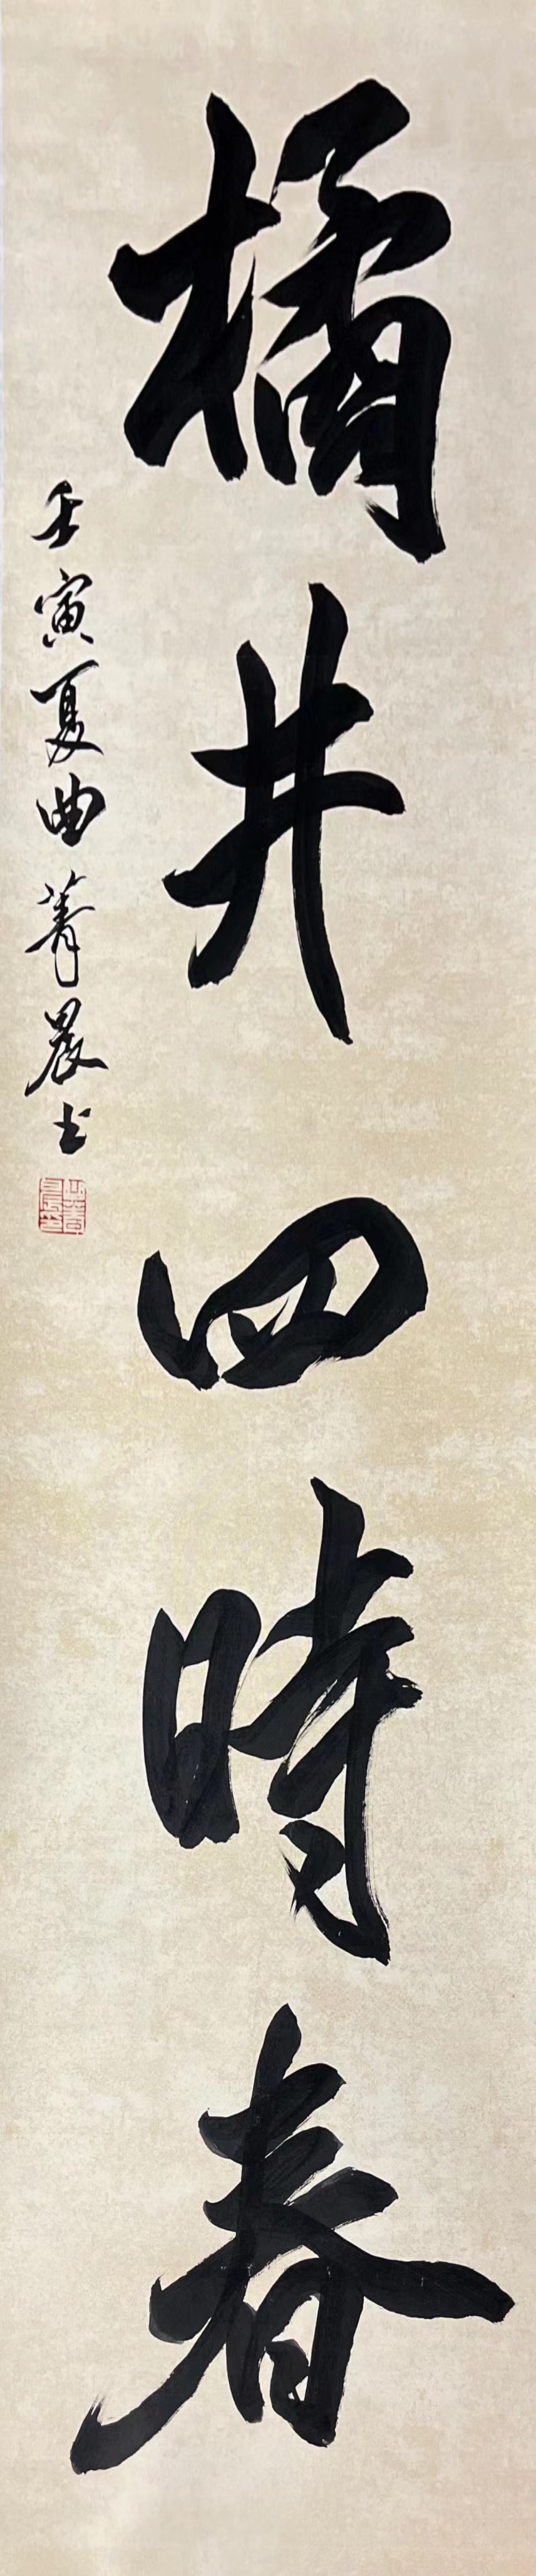 橘井四時春
壬寅夏曲菁晨书